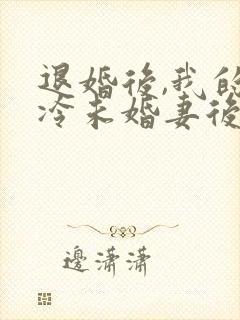 退婚後,我的
冷未婚妻後
邊瀟瀟